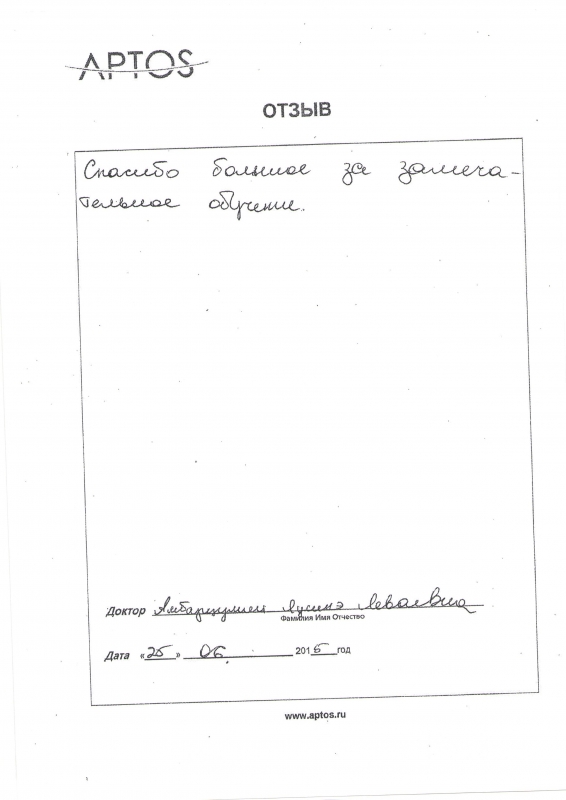 APTOS
ОТЗЫВ
Спасибо большое за замеча-
тельное обучение.
Доктор Амбарцумян Лусинэ
Фамилия Имя Отчество
Дата «25» 06. 2015 год
www.aptos.ru